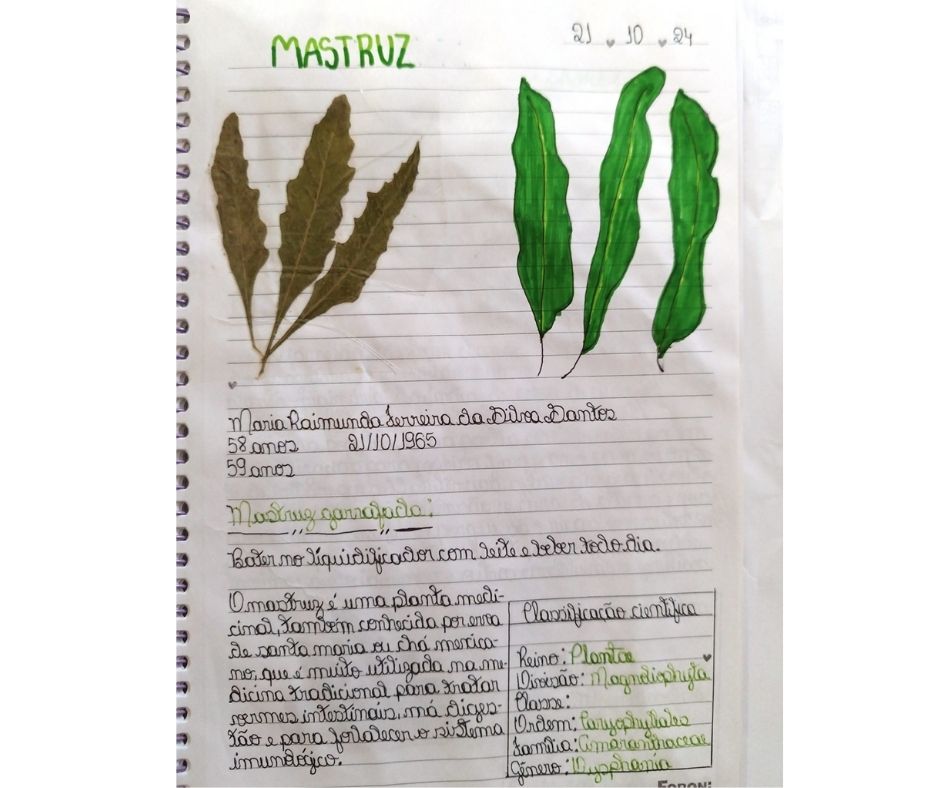 MASTRUZ
21 . 10 . 24
Maria Raimunda Ferreira da Silva Santos
58 anos 21/10/1965
59 anos
Mastruz garrafada:
Bater no liquidificador com leite e beber todo dia.
O mastruz é uma planta medi-
cinal, também conhecida por erva
de santa maria ou chá mexica-
no, que é muito utilizada na me-
dicina tradicional para tratar
vermes intestinais, má diges-
tão e para fortalecer o sistema
imunológico.
Classificação científica
Reino: Plantae
Divisão: Magnoliophyta
Classe:
Ordem: Caryophyllales
Família: Amaranthaceae
Gênero: Dysphania
FORONI